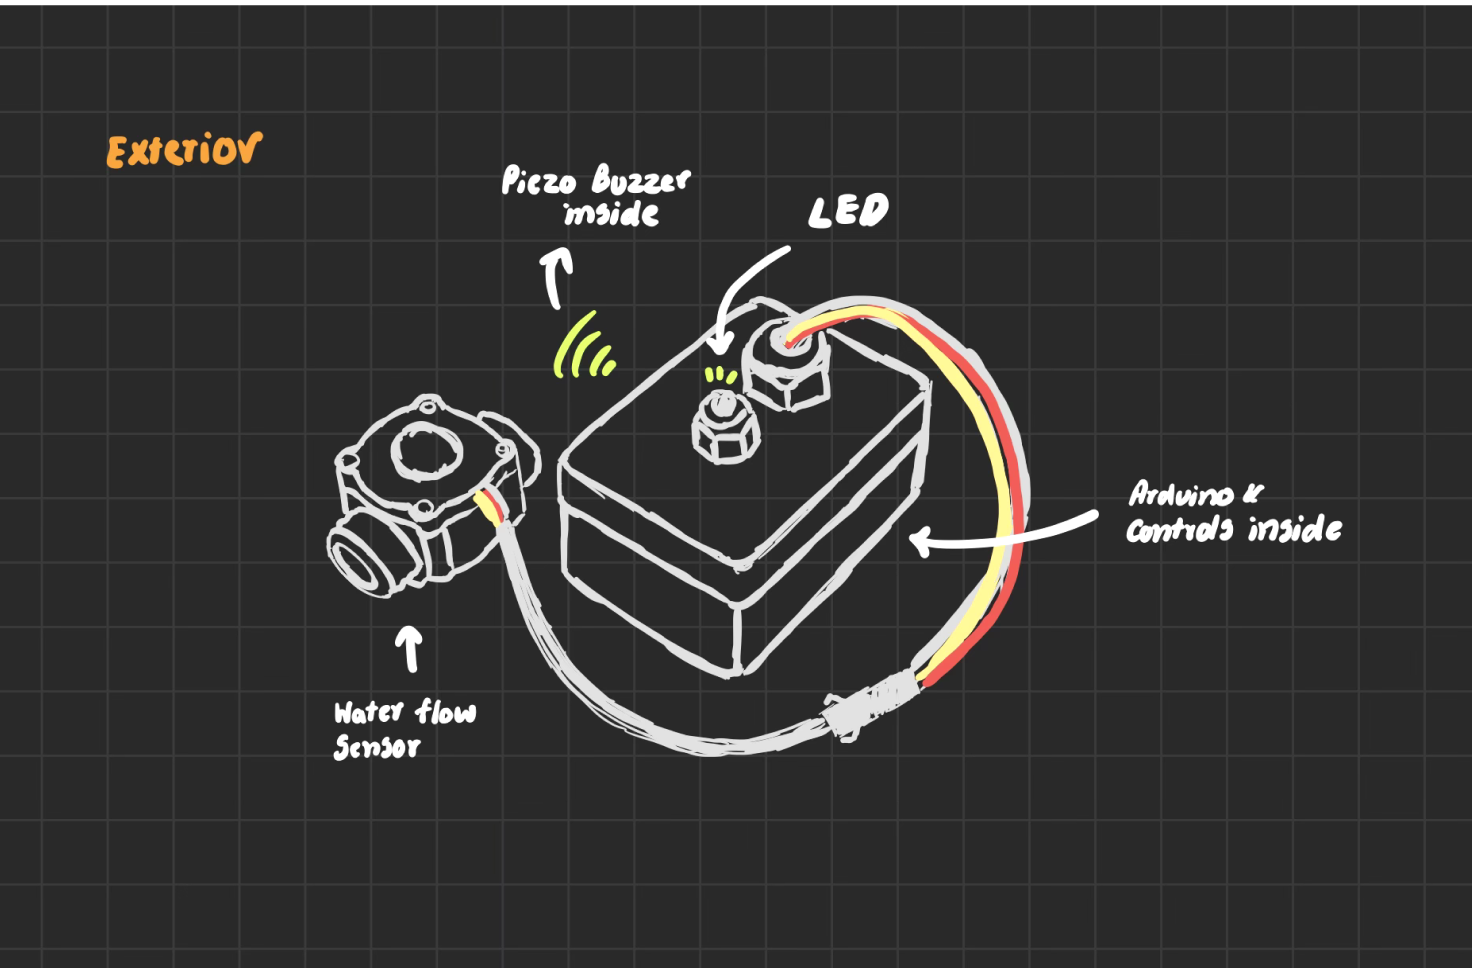 Exterior
Piezo Buzzer
inside
LED
Arduino &
Controls inside
Water flow
Sensor